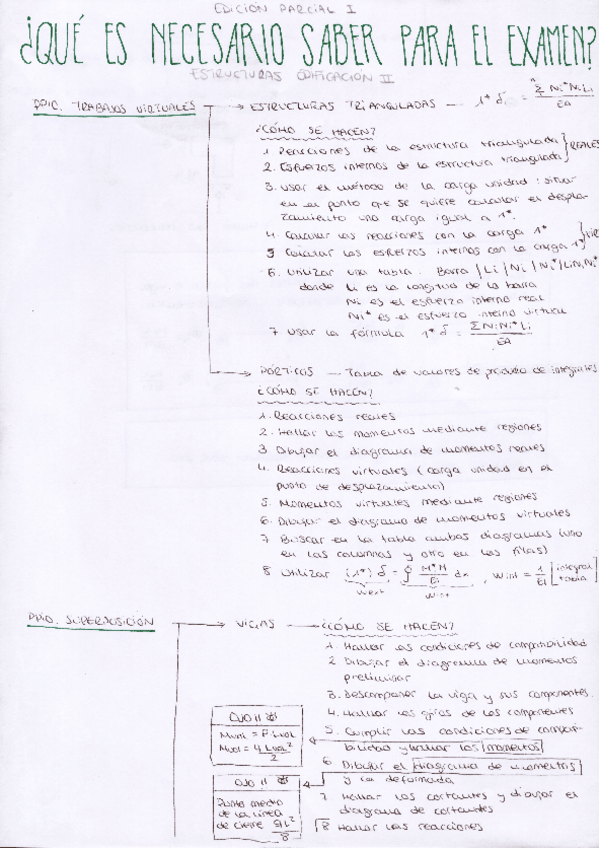 EDICIÓN PARCIAL I
¿QUÉ ES NECESARIO SABER PARA EL EXAMEN?
ESTRUCTURAS EDIFICACIÓN II
PPIO. TRABAJOS VIRTUALES → ESTRUCTURAS TRIANGULADAS — 1* δ = Σ Ni* Ni Li / EA
¿CÓMO SE HACEN?
1. Reacciones de la estructura triangulada } REALES
2. Esfuerzos internos de la estructura triangulada
3. Usar el método de la carga unidad: situar
en el punto que se quiere calcular el despla-
zamiento una carga igual a 1*.
4. Calcular las reacciones con la carga 1*
5 Calcular los esfuerzos internos con la carga 1*
6. Utilizar una tabla. Barra | Li | Ni | Ni* | LiNiNi*
donde Li es la longitud de la barra
Ni es el esfuerzo interno real
Ni* es el esfuerzo interno virtual
7 Usar la fórmula 1* δ = Σ Ni Ni* Li / EA
PÓRTICOS — Tabla de valores de producto de integrales
¿CÓMO SE HACEN?
1. Reacciones reales
2. Hallar los momentos mediante regiones
3 Dibujar el diagrama de momentos reales
4. Reacciones virtuales (carga unidad en el
punto de desplazamiento)
5. Momentos virtuales mediante regiones
6. Dibujar el diagrama de momentos virtuales
7 Buscar en la tabla ambos diagramas (uno
en las columnas y otro en las filas)
8 Utilizar (1*) δ = ∫ M* M / EI dx, Wint = 1/EI [integral tabla]
Wext Wint
PPIO. SUPERPOSICIÓN → VIGAS → ¿CÓMO SE HACEN?
1. Hallar las condiciones de compatibilidad
2 Dibujar el diagrama de momentos
preliminar
3. Descomponer la viga y sus componentes.
4. Hallar los giros de los componentes
5. Cumplir las condiciones de compati-
bilidad y hallar los momentos
6 Dibujar el diagrama de momentos
y la deformada
7 Hallar los cortantes y dibujar el
diagrama de cortantes
8 Hallar las reacciones
OJO !!
Mvol = P·Lvol
Mvol = q Lvol² / 2
OJO !!
Punto medio
de la línea
de cierre qL² / 8